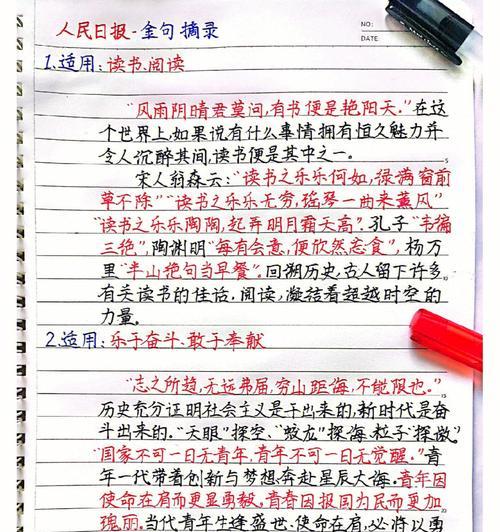 人民日报-金句摘录
NO:
DATE
1.适用:读书、阅读
"风雨阴晴君莫问,有书便是艳阳天。"在这
个世界上,如果说有什么事情拥有恒久魅力并
令人沉醉其间,读书便是其中之一。
宋人翁森云:"读书之乐乐何如,绿满窗前
草不除""读书之乐乐无穷,瑶琴一曲来薰风"
"读书之乐乐陶陶,起弄明月霜天高"。孔子"韦编
三绝",陶渊明"每有会意,便欣然忘食",杨万
里"半山绝句当早餐"。回溯历史,古人留下许多
有关读书的佳话。阅读,凝结着超越时空的
力量。
2.适用:乐于奋斗、敢于奉献
"志之所趋,无远弗届,穷山距海,不能限也。"
历史充分证明社会主义是干出来的,新时代是奋
斗出来的。"天眼"探空、"蛟龙"探海、"粒子"探微。
"国家不可一日无青年,青年不可一日无觉醒。"青
年一代带着创新与梦想,奔赴星辰大海。青年因
使命在肩而更显勇毅,青春因报国为民而更加
瑰丽。当代青年生逢盛世、使命在肩,必将以勇